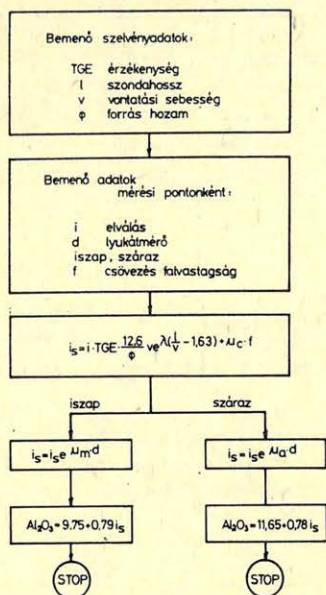 Bemenő szelvényadatok:
TGE érzékenység
l szondahossz
v vontatási sebesség
φ forrás hozam
Bemenő adatok
mérési pontonként:
i elválás
d lyukátmérő
iszap, száraz
f csövezés falvastagság
i_s = i·TGE·12,6/φ ve^λ(l/v − 1,63) + μ_c·f
iszap száraz
i_s = i_s e^μ_m·d i_s = i_s e^μ_a·d
Al₂O₃ = 9,75+0,79 i_s Al₂O₃ = 11,65+0,78 i_s
STOP STOP